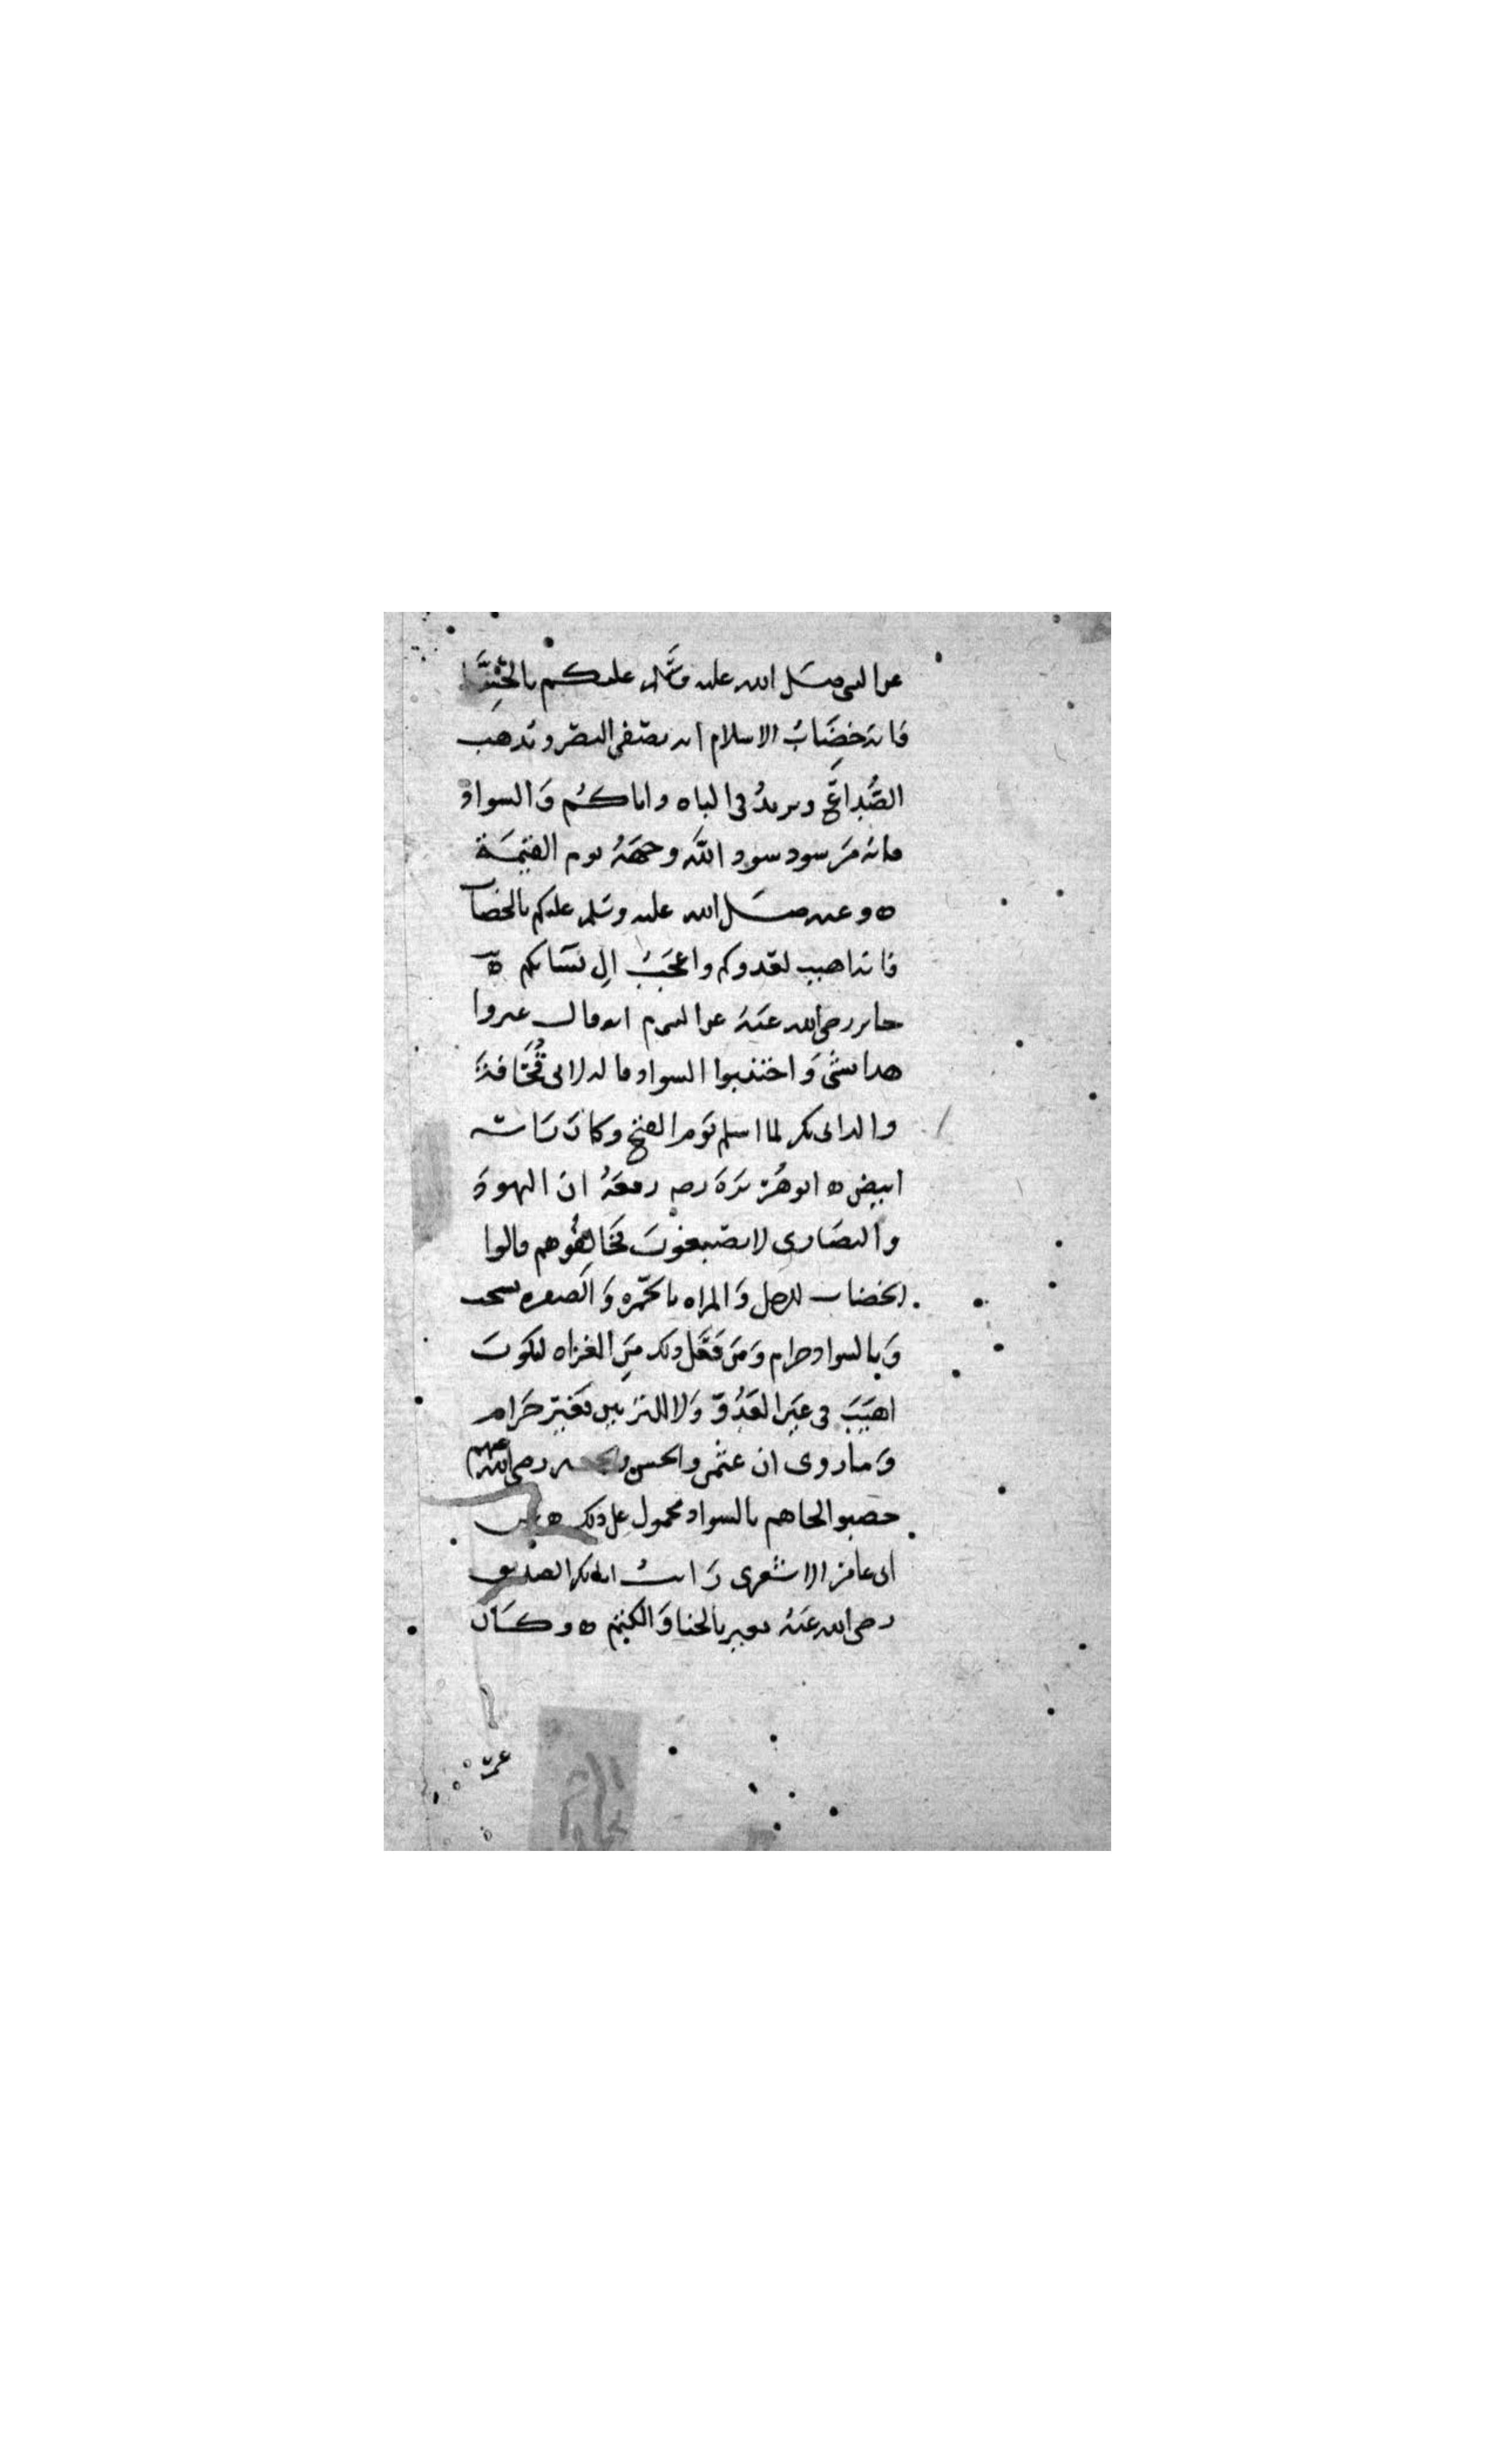 عن النبي صلى الله عليه وسلم عليكم بالحِنَّا
فانه خِضَابُ الاسلام انه يصفى البصر ويذهب
الصُّداع ويزيدُ في الباه واياكُم وَالسواد
فانه مَن سود سود اللَّه وجهَهُ يوم القيٰمَة
ه وعنه صلى الله عليه وسلم عليكم بالخضاب
فانه اهيب لعدوكم واعجَبُ الى نسَائكم ه
جابر رضي الله عَنهُ عن النبي م انه قال غيروا
هذا بشيءٍ وَاجتنبوا السواد قاله لابى قُحَافةَ
والد ابى بكر لما اسلم يَوم الفتح وكانَ رَاسه
ابيض ه ابو هُرَيرَةَ رضه رفعَهُ ان اليهودَ
والنصَارى لا يصبغونَ فخَالِفُوهم قالوا
الخضاب للرجل وَالمراه بالحُمره وَالصفره يستحب
وَبالسواد حرام وَمَن فَعَل ذلك مِنَ الغزاه ليكونَ
اهيَبَ فى عَين العَدُوّ وَلا للتزيين فغَير حَرام
وَما روى ان عثمٰن والحسن والحسين رضي الله عنهم
خضبوا لحاهم بالسواد محمول على ذلك ه عن
ابى عامر الاشعرى رَايتُ ابا بكر الصديق
رضي الله عَنهُ يغير بالحنا وَالكتم ه وكَانَ
عمر